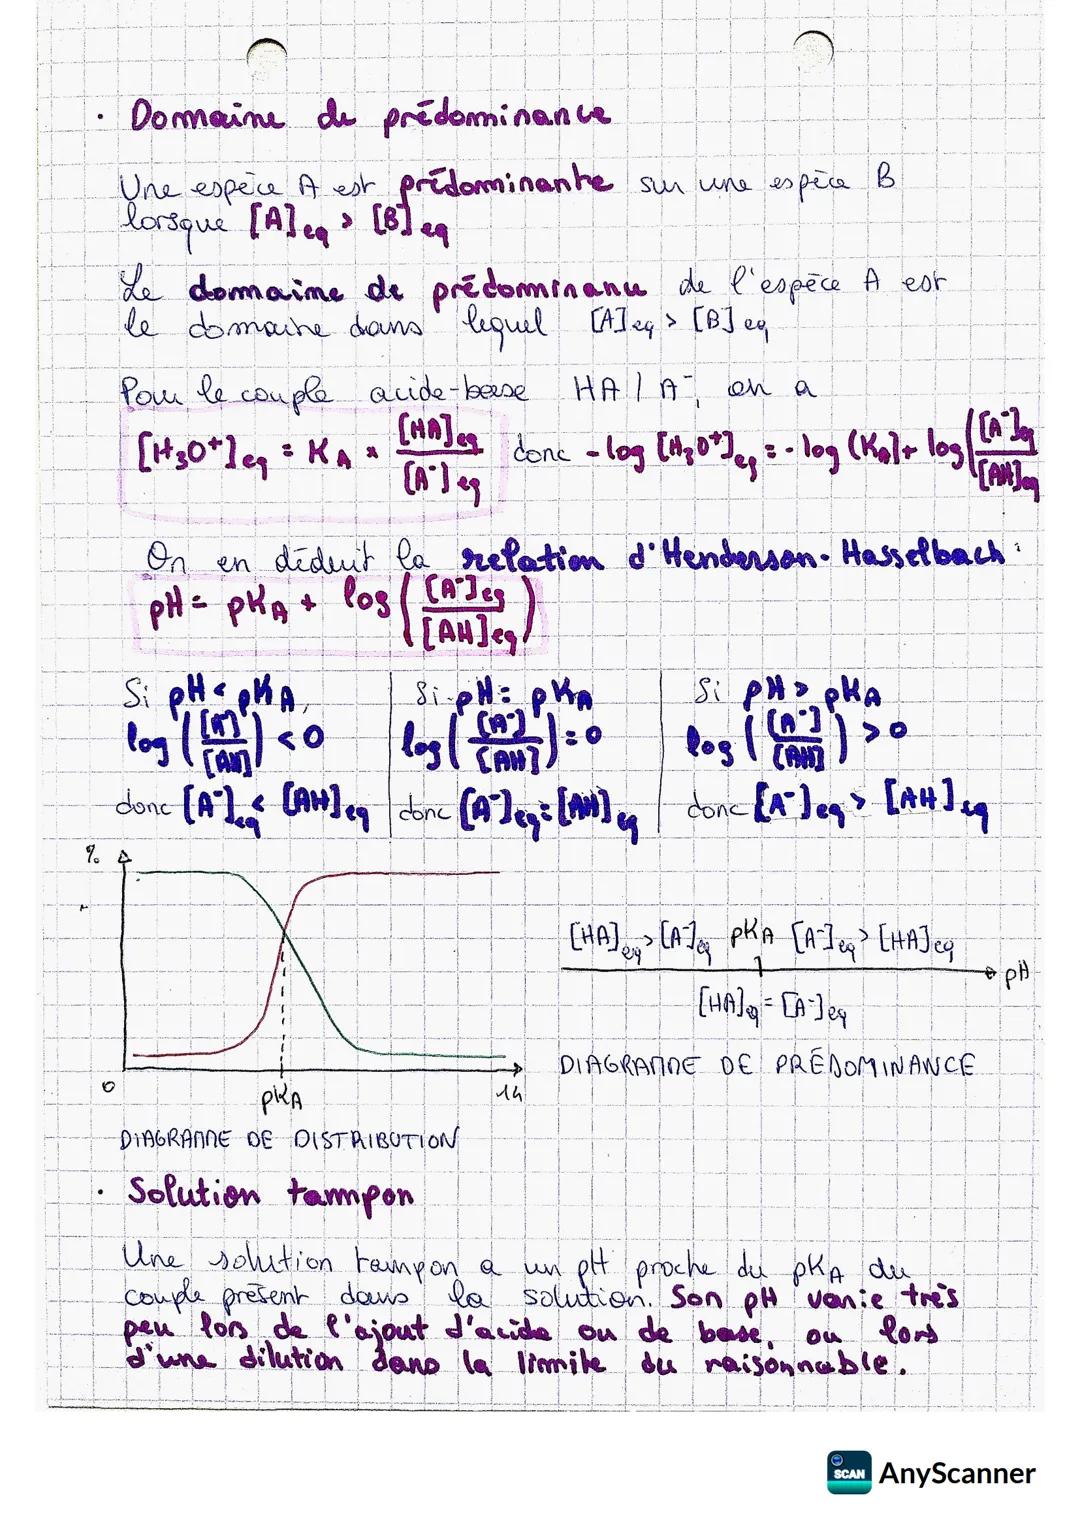 • Domaine de prédominance
Une espèce A est prédominante sur une espèce B
lorsque [A]eq > [B]eq
Le domaine de prédominance de l'espèce A est
le domaine dans lequel [A]eq > [B]eq
Pour le couple acide-base HA / A⁻, on a
[H₃O⁺]eq = KA × [HA]eq / [A⁻]eq donc - log [H₃O⁺]eq = - log (KA) + log ([A⁻]eq / [AH]eq)
On en déduit la relation d'Henderson-Hasselbach :
pH = pKA + log ([A⁻]eq / [AH]eq)
Si pH < pKA,
log ([A⁻] / [AH]) < 0
donc [A⁻]eq < [AH]eq
Si pH = pKA
log ([A⁻] / [AH]) = 0
donc [A⁻]eq = [AH]eq
Si pH > pKA
log ([A⁻] / [AH]) > 0
donc [A⁻]eq > [AH]eq
%
0
pKA
14
DIAGRAMME DE DISTRIBUTION
[HA]eq > [A⁻]eq pKA [A⁻]eq > [HA]eq
pH
[HA]eq = [A⁻]eq
DIAGRAMME DE PRÉDOMINANCE
• Solution tampon
Une solution tampon a un pH proche du pKA du
couple présent dans la solution. Son pH varie très
peu lors de l'ajout d'acide ou de base, ou lors
d'une dilution dans la limite du raisonnable.
SCAN AnyScanner